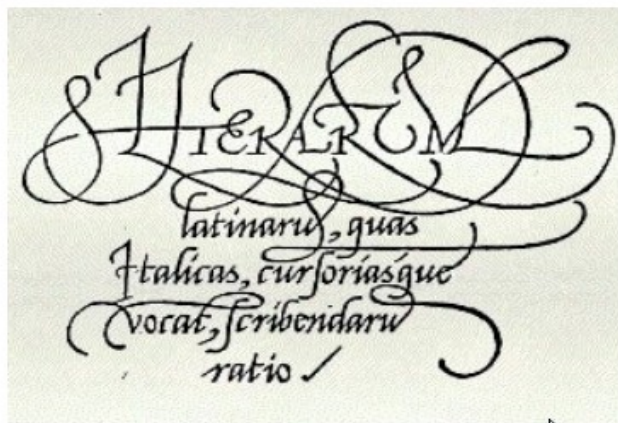 LITERARUM
latinarū, quas
Italicas, cursoriasque
vocāt, scribendarū
ratio